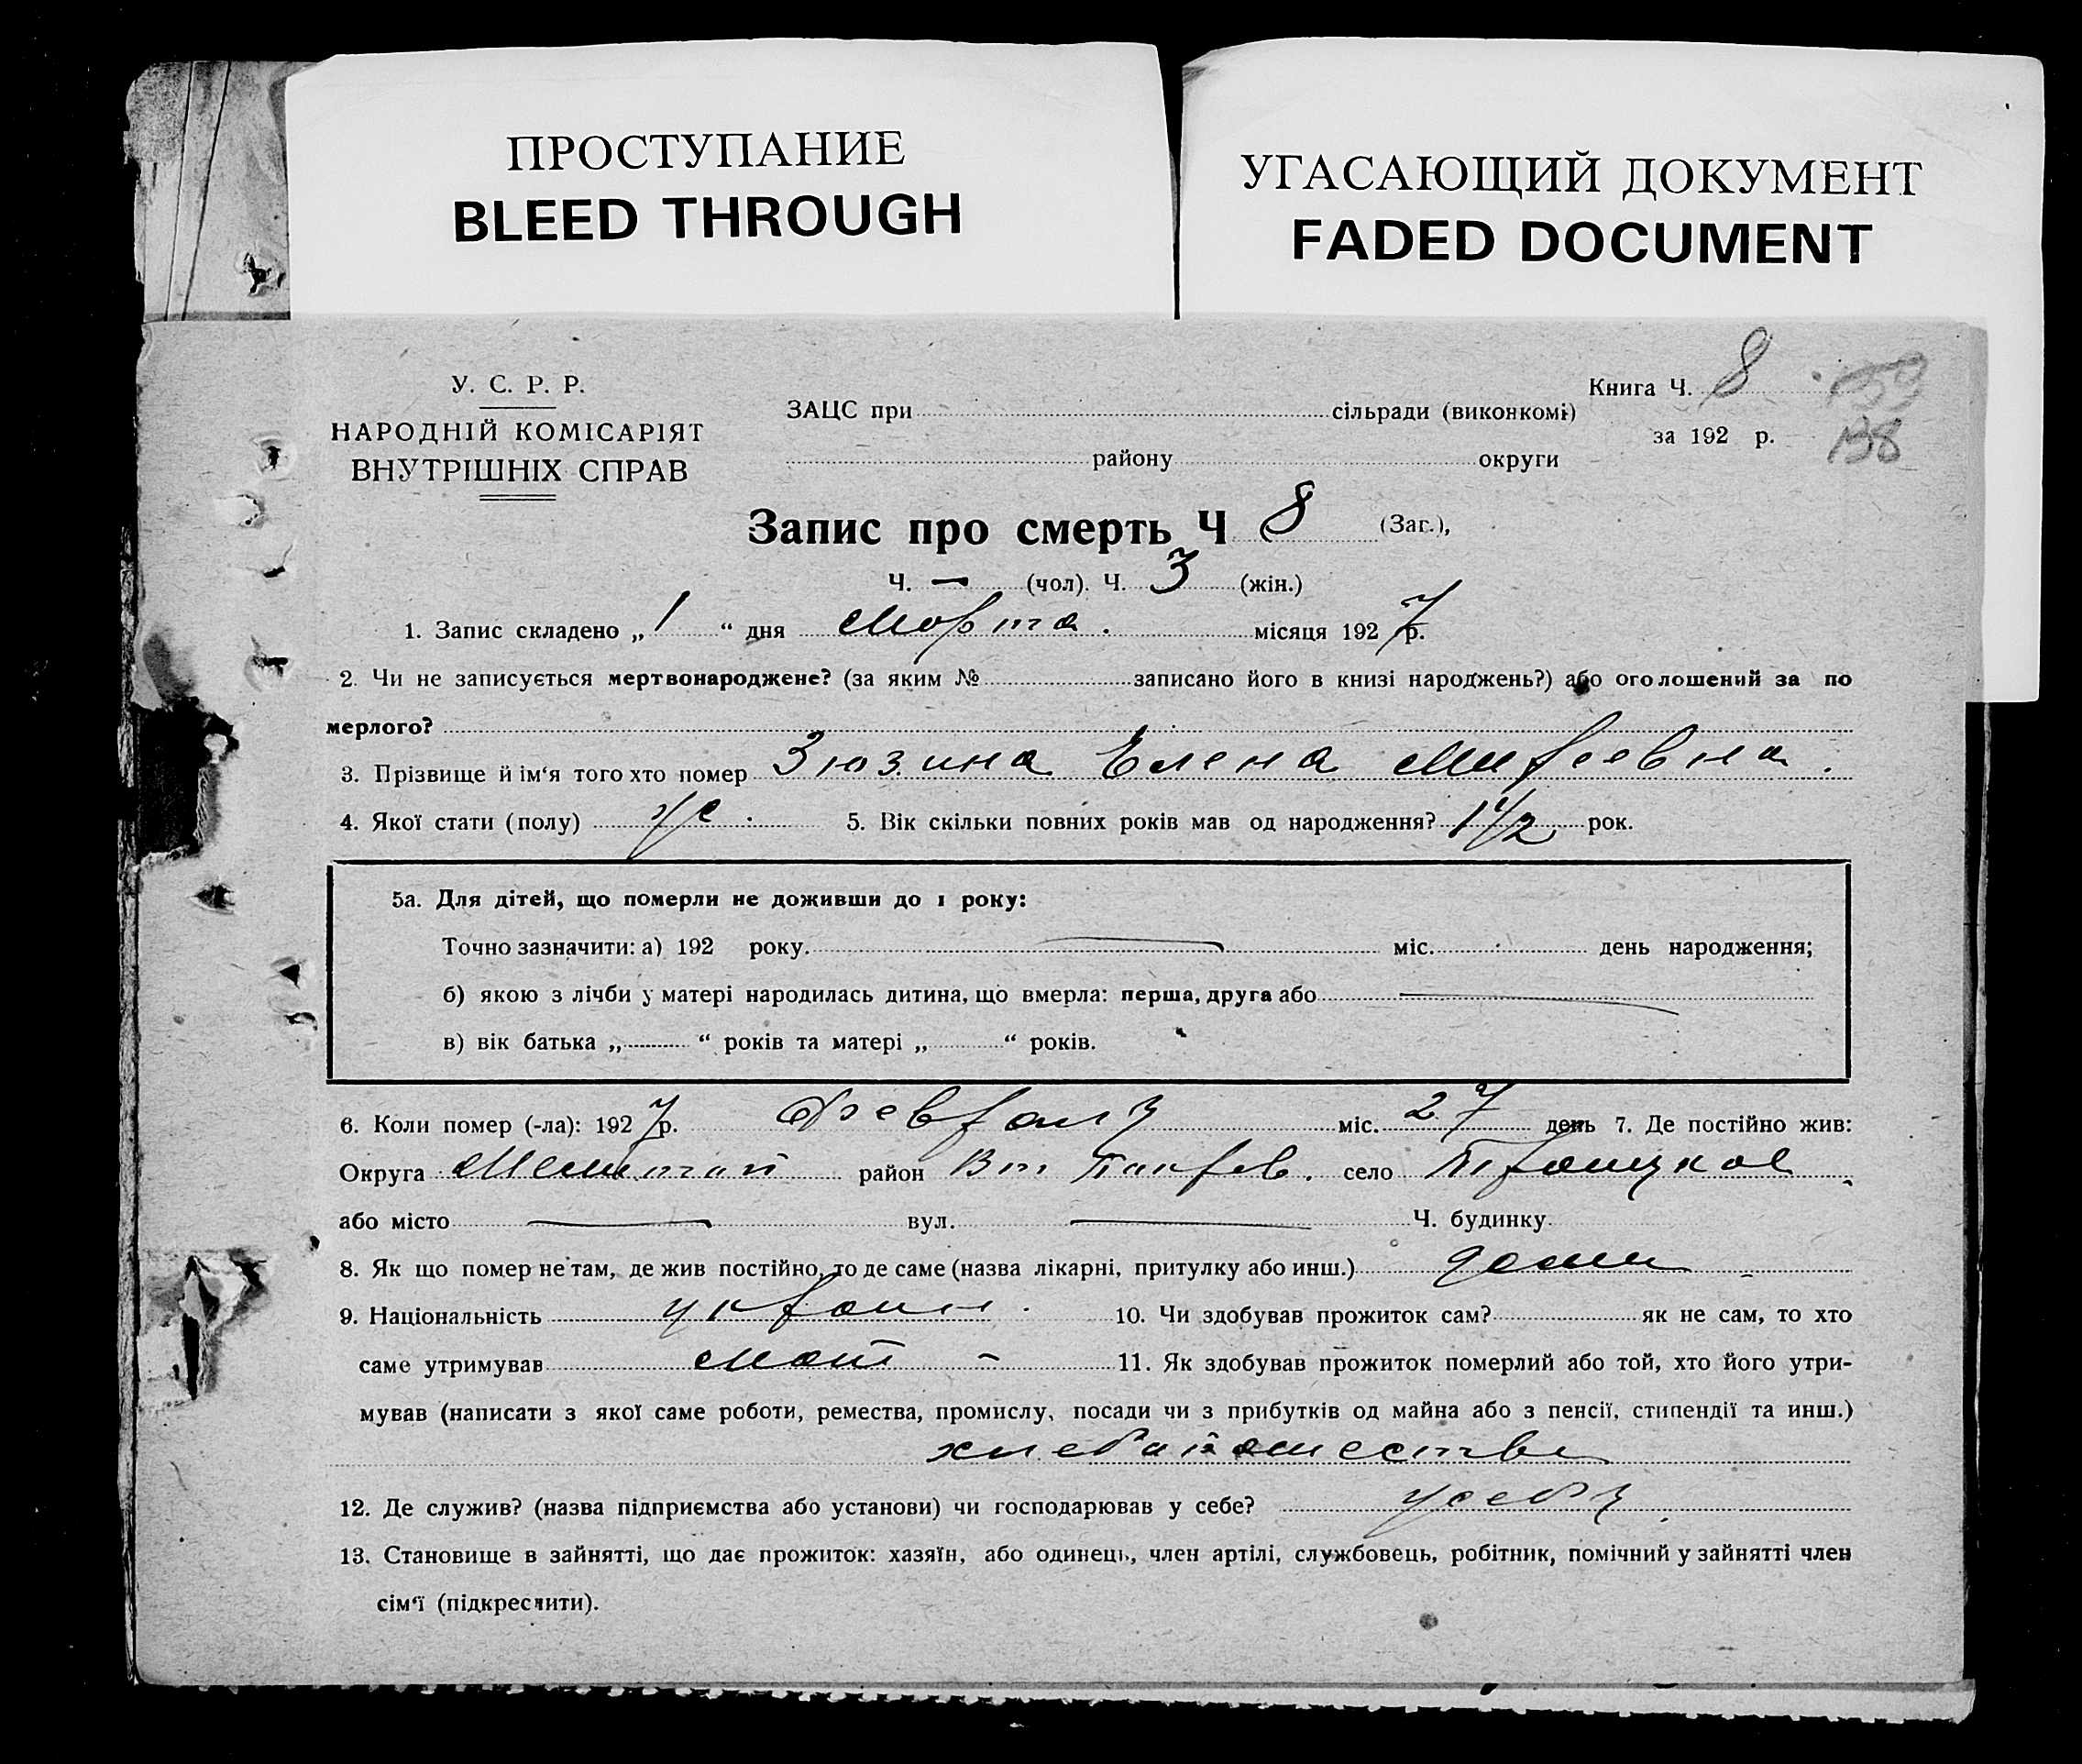 ПРОСТУПАНИЕ
BLEED THROUGH
УГАСАЮЩИЙ ДОКУМЕНТ
FADED DOCUMENT
У. С. Р. Р.
НАРОДНІЙ КОМІСАРІЯТ
ВНУТРІШНІХ СПРАВ
ЗАЦС при сільради (виконкомі)
району округи
Книга Ч. 8
за 192 р.
138
Запис про смерть Ч 8 (Заг.),
Ч. — (чол). Ч. 3 (жін.)
1. Запис складено „ 1 “ дня Марта. місяця 1927 р.
2. Чи не записується мертвонароджене? (за яким № записано його в книзі народжень?) або оголошений за по
мерлого?
3. Прізвище й ім‘я того хто помер Зюзина Елена
4. Якої стати (полу) ж. 5. Вік скільки повних років мав од народження? 1 1/2 рок.
5а. Для дітей, що померли не доживши до 1 року:
Точно зазначити: а) 192 року. — міс. день народження;
б) якою з лічби у матері народилась дитина, що вмерла: перша, друга або —
в) вік батька „ “ років та матері „ “ років.
6. Коли помер (-ла): 1927 р. міс. 27 день 7. Де постійно жив:
Округа район село
або місто — вул. — Ч. будинку
8. Як що помер не там, де жив постійно, то де саме (назва лікарні, притулку або инш.) дома
9. Національність украин. 10. Чи здобував прожиток сам? як не сам, то хто
саме утримував 11. Як здобував прожиток померлий або той, хто його утри-
мував (написати з якої саме роботи, ремества, промислу, посади чи з прибутків од майна або з пенсії, стипендії та инш.)
12. Де служив? (назва підприємства або установи) чи господарював у себе?
13. Становище в зайнятті, що дає прожиток: хазяїн, або одинець, член артілі, службовець, робітник, помічний у зайнятті член
сім‘ї (підкреслити).